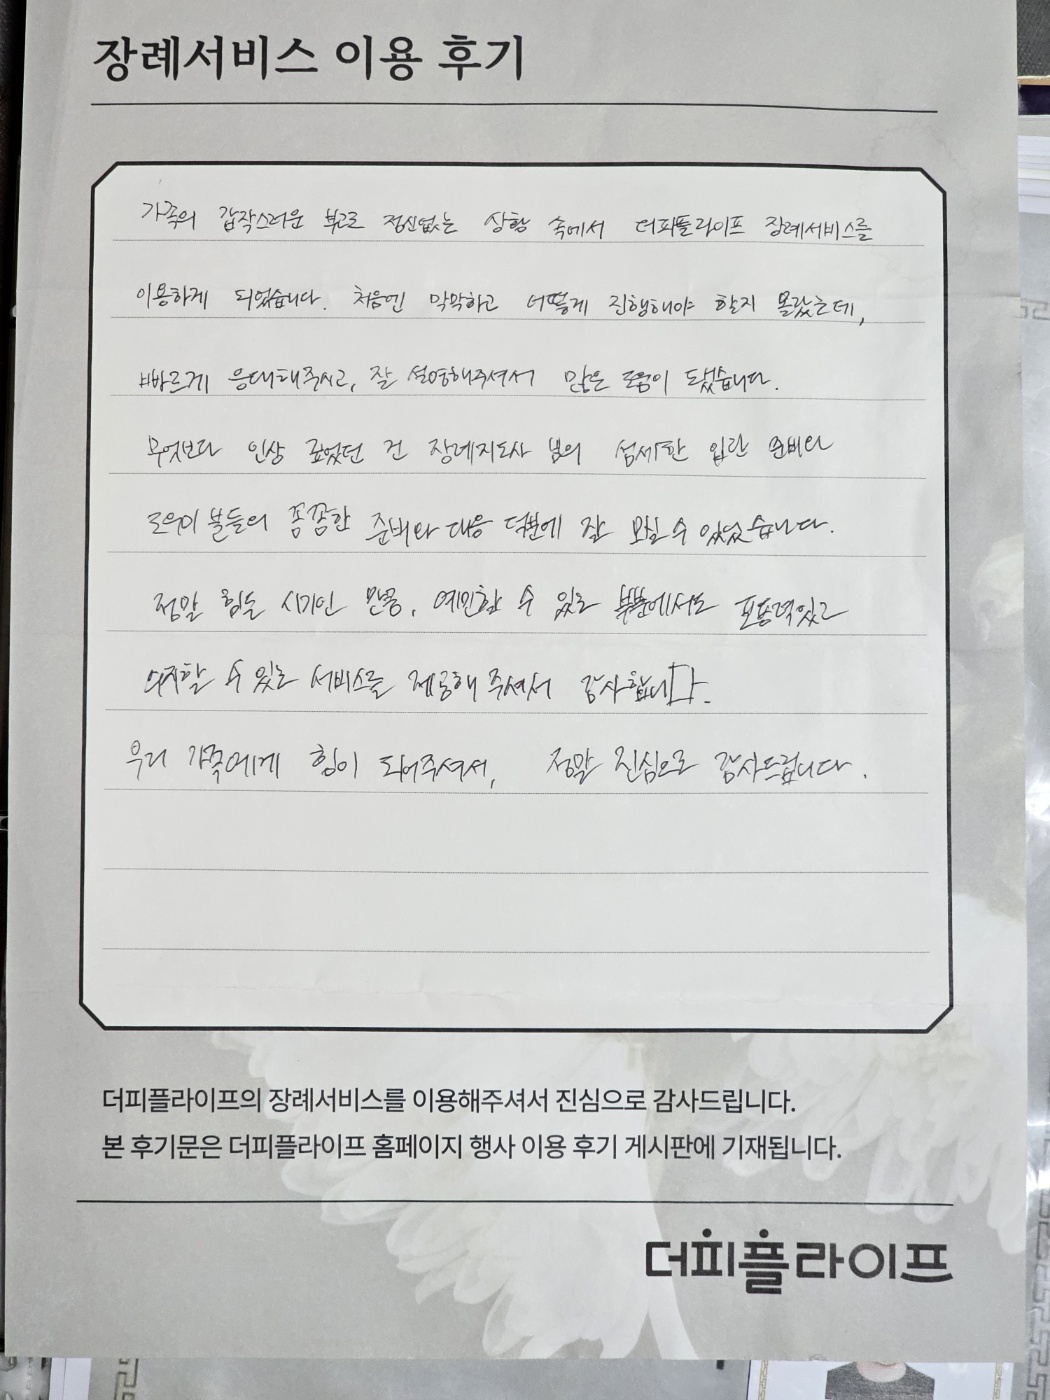 장례서비스 이용 후기
가족의 갑작스러운 부고로 정신없는 상황 속에서 더피플라이프 장례서비스를
이용하게 되었습니다. 처음엔 막막하고 어떻게 진행해야 할지 몰랐는데,
빠르게 응대해주시고, 잘 설명해주셔서 많은 도움이 됐습니다.
무엇보다 인상 깊었던 건 장례지도사 님의 섬세한 입관 준비와
도우미 분들의 꼼꼼한 준비와 대응 덕분에 잘 모실 수 있었습니다.
정말 힘든 시기인 만큼, 예민할 수 있는 부분에서도 포용력있고
의지할 수 있는 서비스를 제공해 주셔서 감사합니다.
우리 가족에게 힘이 되어주셔서, 정말 진심으로 감사드립니다.
더피플라이프의 장례서비스를 이용해주셔서 진심으로 감사드립니다.
본 후기문은 더피플라이프 홈페이지 행사 이용 후기 게시판에 기재됩니다.
더피플라이프